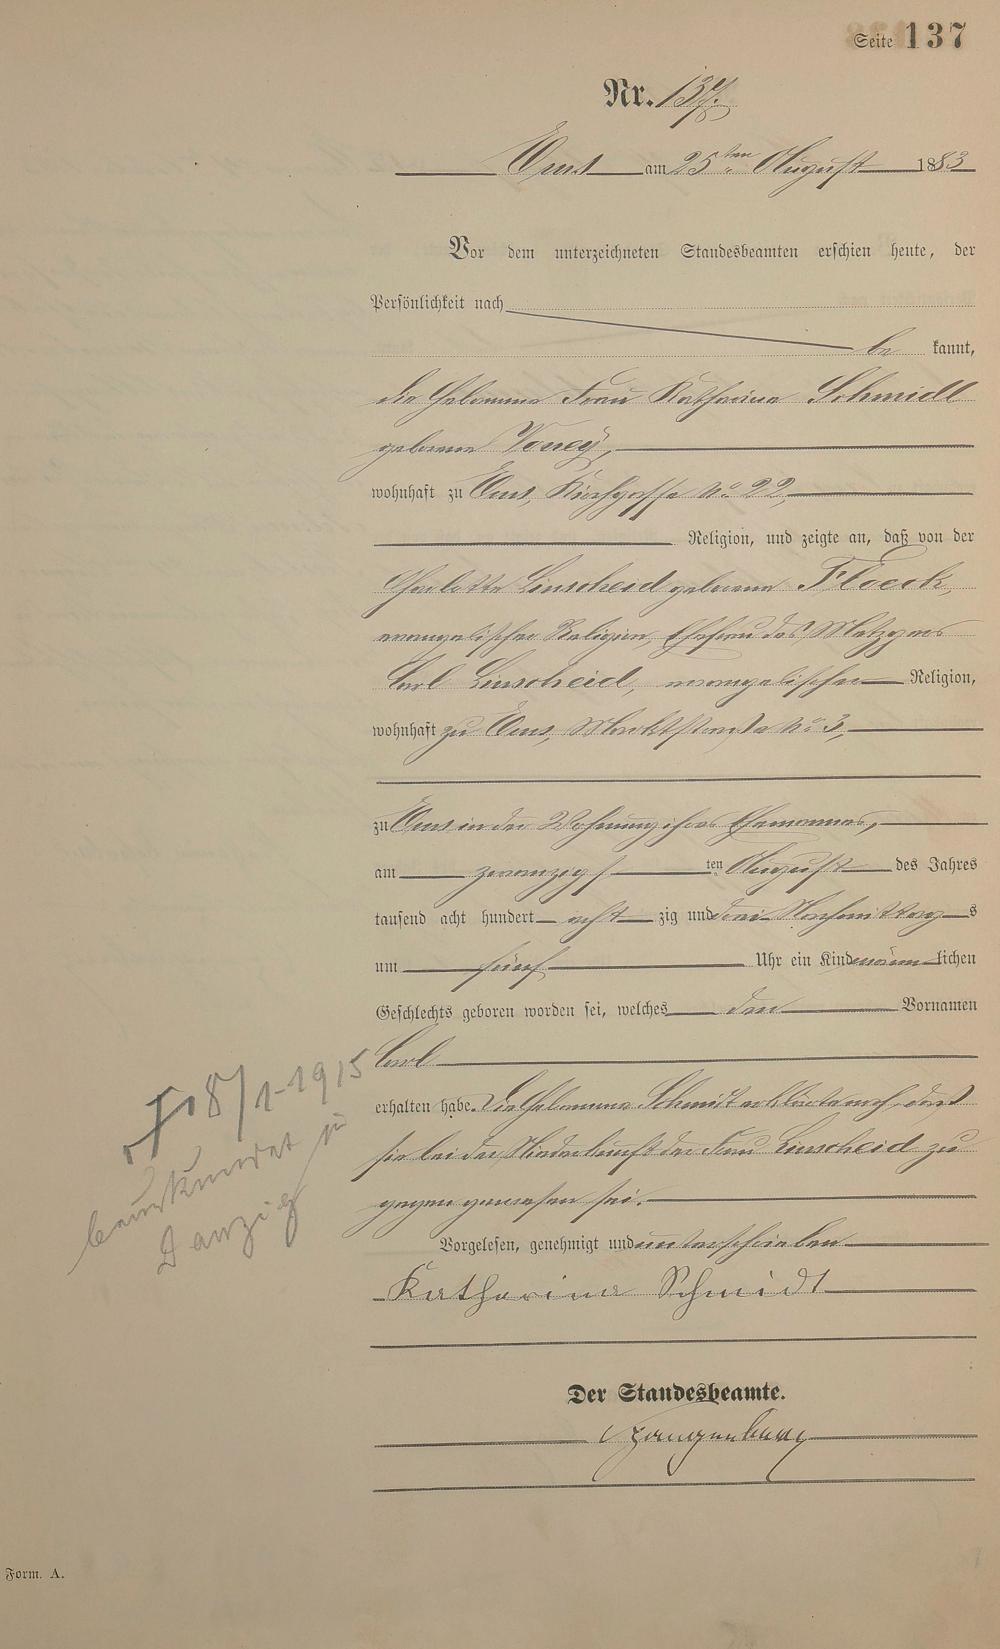 Seite 137
Nr. 137.
Ems am 25ten August 1883
Vor dem unterzeichneten Standesbeamten erschien heute, der
Persönlichkeit nach
be kannt,
die Hebamme Frau Katharina Schmidt
geborene
wohnhaft zu Ems, Kirchgasse No 22,
Religion, und zeigte an, daß von der
Charlotte Linscheid geborene Flöck,
evangelischer Religion, Ehefrau des Metzgers
Carl Linscheid, evangelischer Religion,
wohnhaft zu Ems, Marktstraße No 3,
zu Ems in der Wohnung ihres Ehemannes,
am zwanzigsten August des Jahres
tausend acht hundert acht zig und drei Nachmittags
um fünf Uhr ein Kind männlichen
Geschlechts geboren worden sei, welches den Vornamen
Carl
erhalten habe. Die Hebamme Schmidt erklärte noch, daß
sie bei der Niederkunft der Frau Linscheid zu
gegen gewesen sei.
Vorgelesen, genehmigt und unterschrieben
Katharina Schmidt
Der Standesbeamte.
Spangenberg
18/1-1915
beurkundet in
Danzig
Form. A.